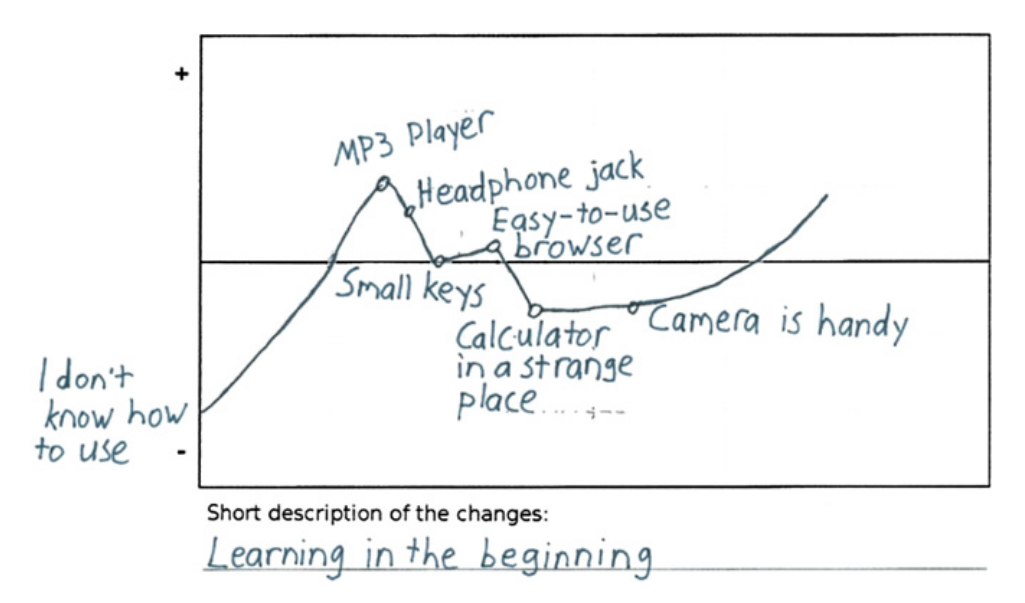 +
MP3 Player
Headphone jack
Easy-to-use
browser
Small keys
Calculator
in a strange
place
Camera is handy
I don't
know how
to use
-
Short description of the changes:
Learning in the beginning